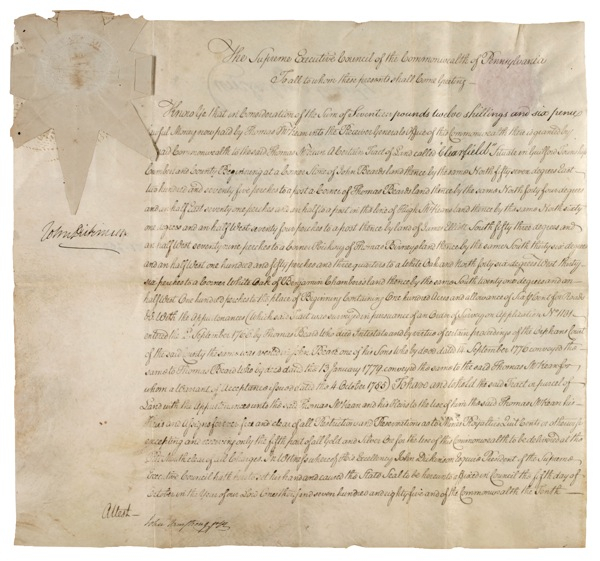 The Supreme Executive Council of the Commonwealth of Pennsylvania
To all to whom these presents shall Come Greeting —
Know Ye that in Consideration of the Sum of Seventeen pounds twelve shillings and six pence
lawful Money now paid by Thomas McKean into the Receiver Generals Office of this Commonwealth there is granted by
said Commonwealth unto the said Thomas McKean A Certain Tract of Land called "Clearfield" Situate in Guilford Township
Cumberland County Beginning at a Corner Stone of John Beards land thence by the same North fifty seven degrees East
two hundred and seventy five perches to a post a Corner of Thomas Beards land thence by the same North forty four degrees
and an half East seventy one perches and an half to a post in the line of Hugh land thence by the same North sixty
one degrees and an half West seventy four perches to a post thence by land of James South fifty three degrees and
an half West seventy nine perches to a Corner of Thomas land thence by the same South thirty six degrees
and an half West one hundred and fifty perches and three quarters to a White Oak and North forty six degrees West thirty
six perches to a Corner White Oak of Benjamin Chambers land thence by the same South twenty one degrees and an
half West One hundred perches to the place of Beginning Containing One hundred Acres and allowance of Six p Cent for Roads
&c With the Appurtenances (Which said Tract was surveyed in pursuance of an Order of Survey on Application No
entered the September by Thomas Beard who died Intestate and by virtue of certain proceedings of the Orphans Court
of the said County the same was vested in John Beard one of his Sons who by deed dated September 1776 conveyed the
same to Thomas Beard who by deed dated the 13 January 1779 conveyed the same to the said Thomas McKean for
whom a Warrant of Acceptance issued dated the 4 October 1785) To have and to hold the said Tract or parcel of
Land with the Appurtenances unto the said Thomas McKean and his Heirs to the use of him the said Thomas McKean his
Heirs and Assigns for ever free and clear of all Restrictions and Reservations as to Mines Royalties Quit Rents or otherwise
excepting and reserving only the fifth part of all Gold and Silver Ore for the use of this Commonwealth to be delivered at the
Pits Mouth clear of all Charges. In Witness whereof His Excellency John Dickinson Esquire President of the Supreme
Executive Council hath hereto set his hand and caused the State Seal to be hereunto affixed in Council the fifth day of
October in the Year of our Lord One thousand seven hundred and eighty five and of the Commonwealth the Tenth —
John Dickinson
Attest —
John Armstrong jr